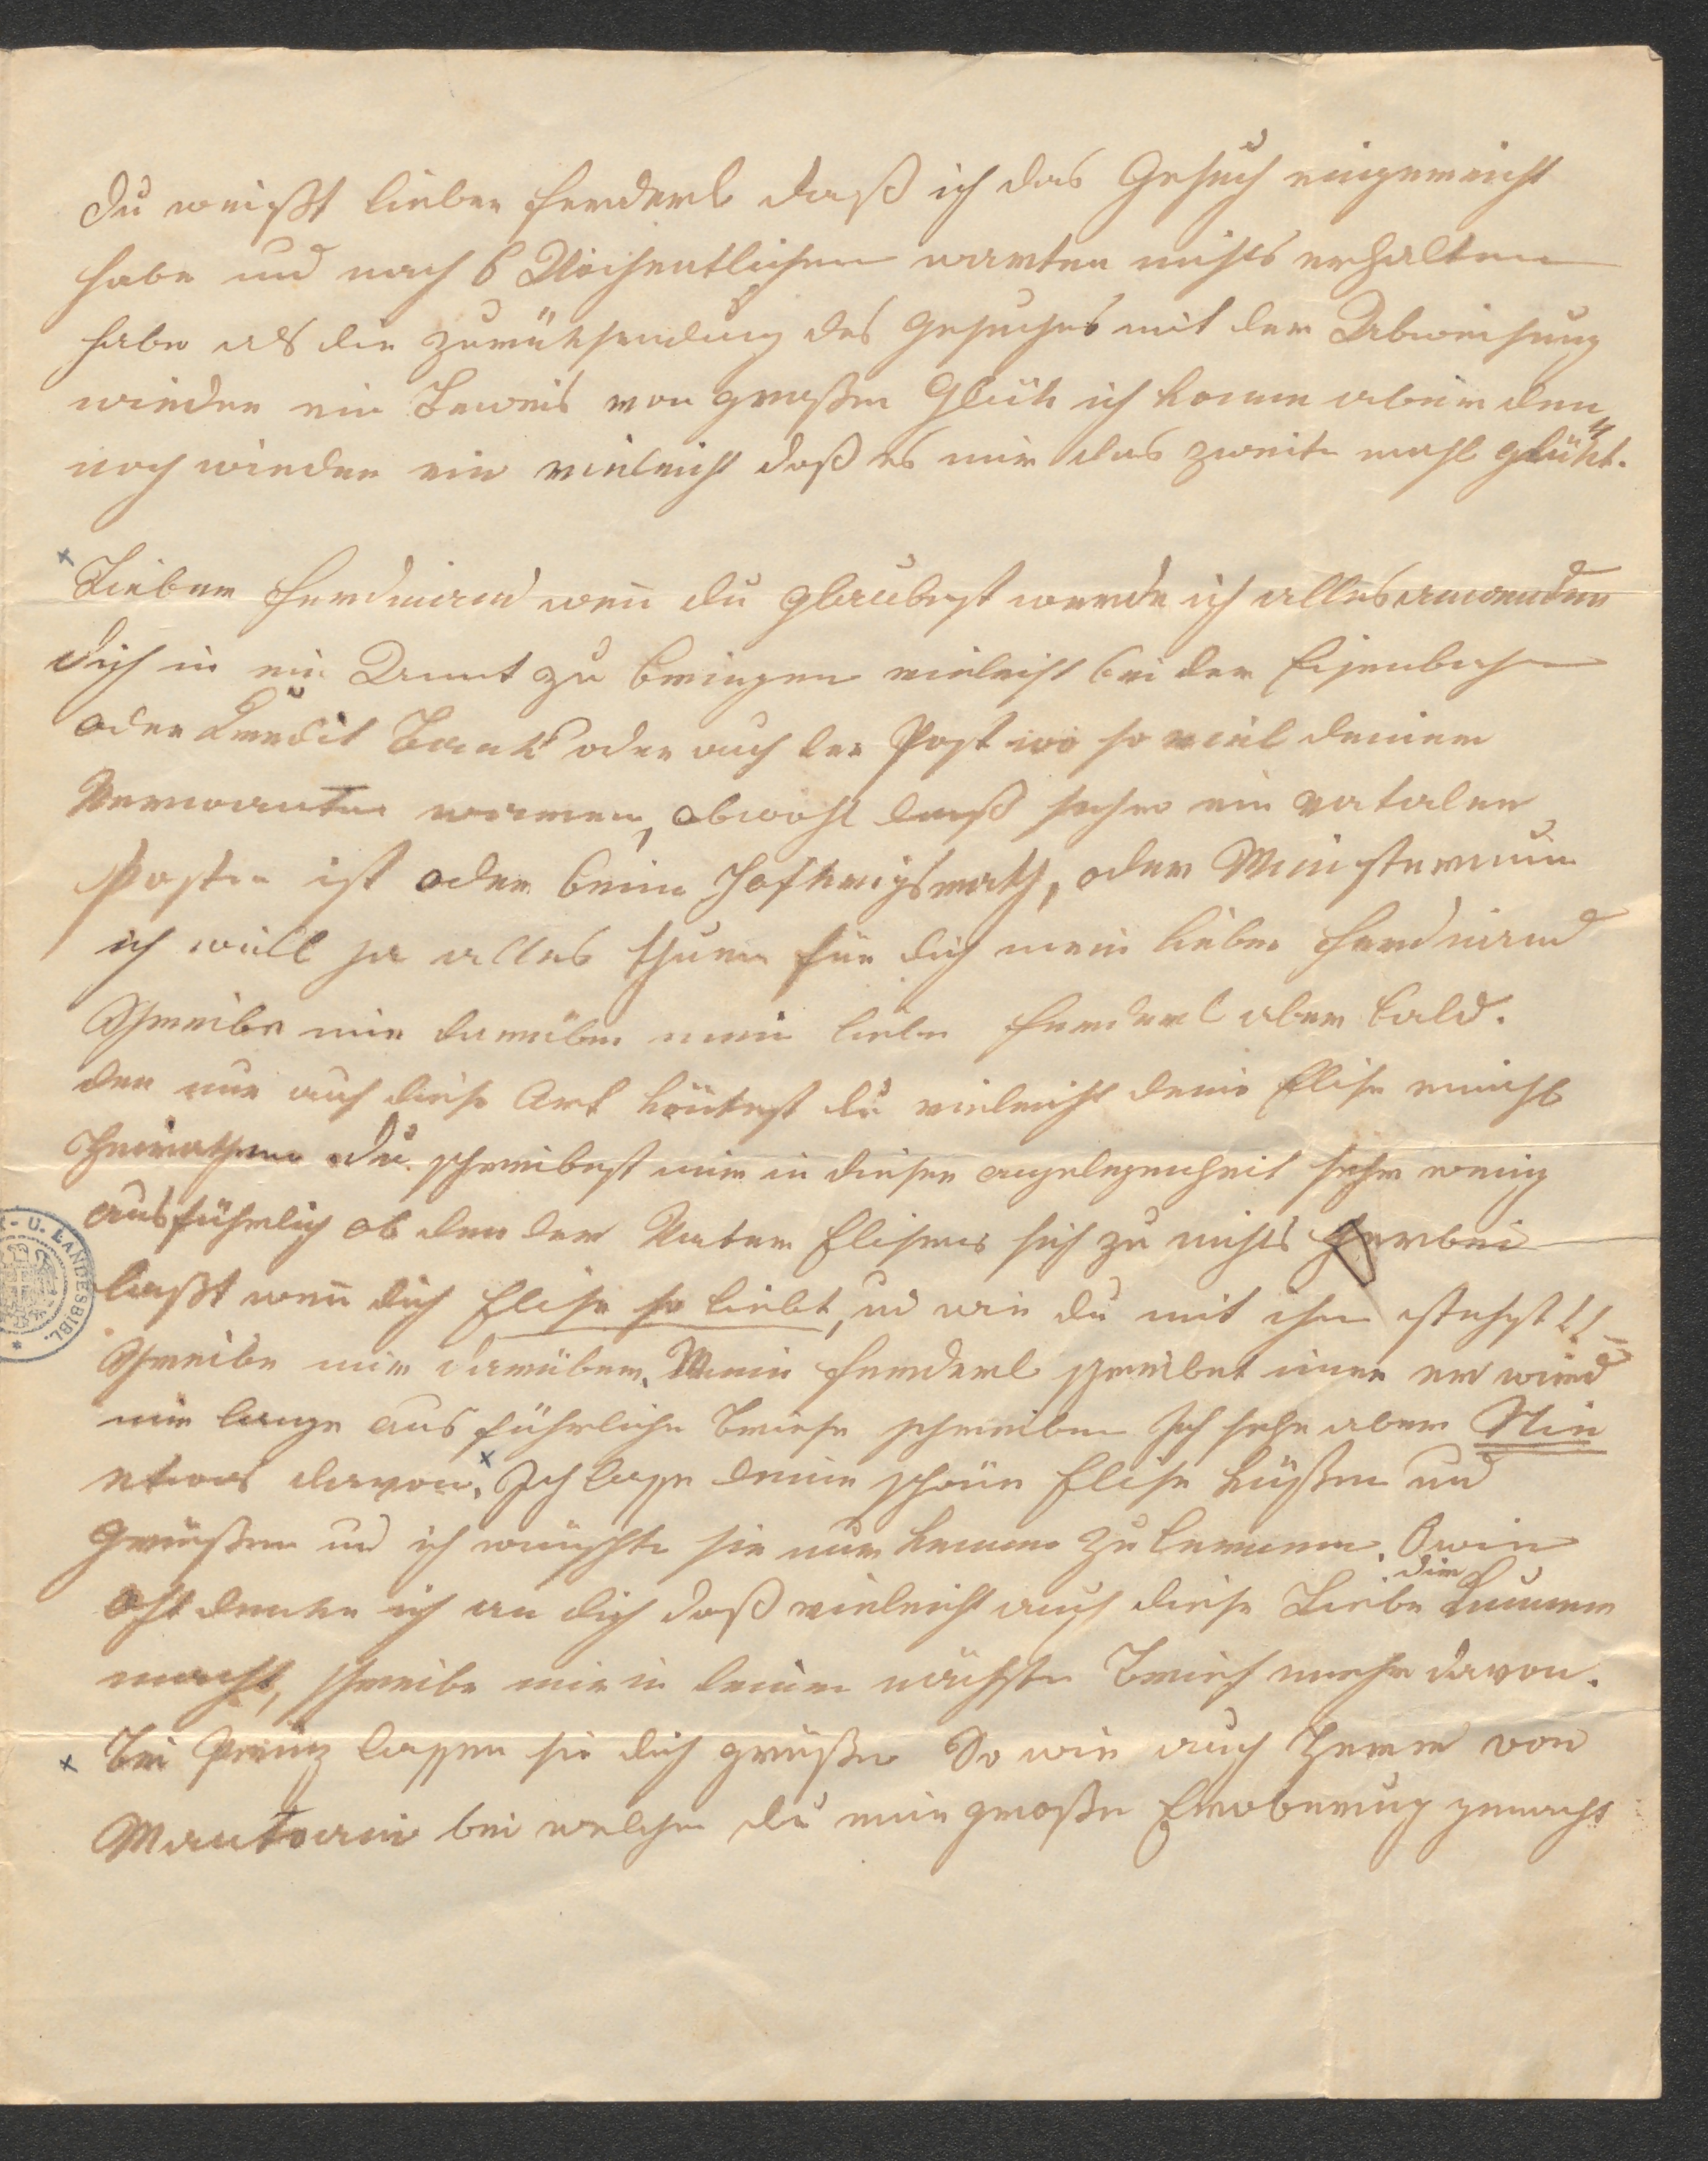 du weißt lieber Ferderl daß ich das Gesuch eingereicht
habe und nach 6 Wöchentlichen warten nichts erhalten
habe als die zurüksendung des Gesuches mit der Abweisung
wieder ein Beweis von großen Glük ich komme aber den„
noch wieder ein vieleicht daß es mir das zweite mahl glükt.
Lieber Ferdinand weñ du glaubest werde ich alles anwenden
dich in ein Ammt zu bringen vieleicht bei der Eisenbahn
oder Kredit Bank oder auch der Post wo so viel deiner
Verwante waren, obwohl daß sehr ein fataler
Posten ist oder beim Hofkriegsrath, oder Ministerium
ich will ja alles thuen für dich mein lieber Ferdinand
Schreibe mir darüber mein lieber Ferderl aber bald.
den nur auf diese Art köntest du vieleicht deine Elise einmahl
Heirathen du schreibest mir in dieser angelegenheit sehr wenig
ausführlich ob den der Vater Elisens sich zu nichts herbei
laßt weñ dich Elise so liebt, und wie du mit ihr stehst!!
Schreibe mir darüber. Mein Ferderl schreibet imer er wird
mir lange ausführliche Briefe schreiben Ich sehe aber Nie
etwas davon. Ich lasse deine schöne Elise küßen und
Grüßen und ich wünschte sie nur kennen zu lernnen. Wie
oft denke ich an dich daß vieleicht auch diese Liebe dir Kummer
macht, schreibe mir in deinen nächsten Brief mehr davon.
Bei Prinz lassen sie dich grüßen So wie auch Herrn von
Mantoani bei welchen du eine große Eroberung gemacht
U. LANDESBIBL.